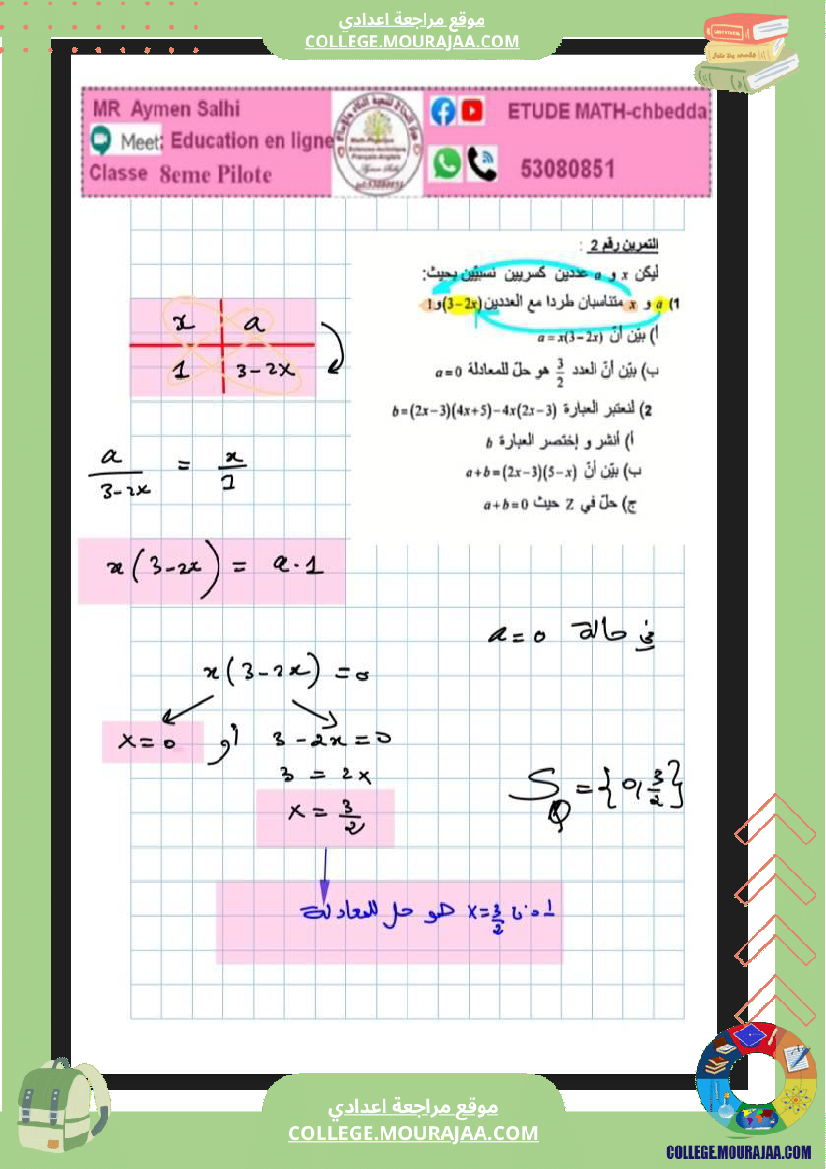 موقع مراجعة اعدادي
COLLEGE.MOURAJAA.COM
MR Aymen Salhi
Meet: Education en ligne
Classe 8eme Pilote
ETUDE MATH-chbedda
53080851
التمرين رقم 2 :
ليكن x و a عددين كسريين نسبيين بحيث:
1) a و x متناسبان طردا مع العددين (3-2x) و 1
أ) بيّن أنّ a = x(3-2x)
ب) بيّن أنّ العدد 3/2 هو حلّ للمعادلة a=0
2) لنعتبر العبارة b=(2x-3)(4x+5)-4x(2x-3)
أ) أنشر و إختصر العبارة b
ب) بيّن أنّ a+b=(2x-3)(5-x)
ج) حلّ في Z حيث a+b=0
x a
1 3-2x
a/(3-2x) = x/1
x(3-2x) = a·1
في حالة a=0
x(3-2x) = 0
x=0 أو 3-2x=0
3 = 2x
x = 3/2
S_Q = {0, 3/2}
x=3/2 هو حل للمعادلة
موقع مراجعة اعدادي
COLLEGE.MOURAJAA.COM
COLLEGE.MOURAJAA.COM